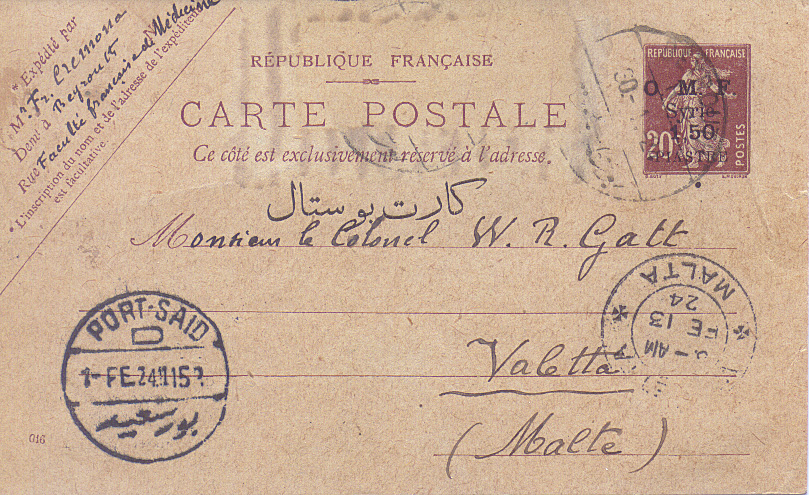 * Expédité par
Mr. Fr. Cremona
Demt à Beyrouth
Rue Faculté française de Médecine
L'inscription du nom et de l'adresse de l'expéditeur
est facultative.
RÉPUBLIQUE FRANÇAISE
CARTE POSTALE
Ce côté est exclusivement réservé à l'adresse.
REPUBLIQUE FRANÇAISE
O. M. F.
Syrie
1.50
PIASTRE
20c
POSTES
كارت بوستال
Monsieur le Colonel W. R. Gatt
Valetta
(Malte)
PORT-SAID
D
1-FE.24.11 15
بورسعيد
MALTA
AM
FE 13
24
016